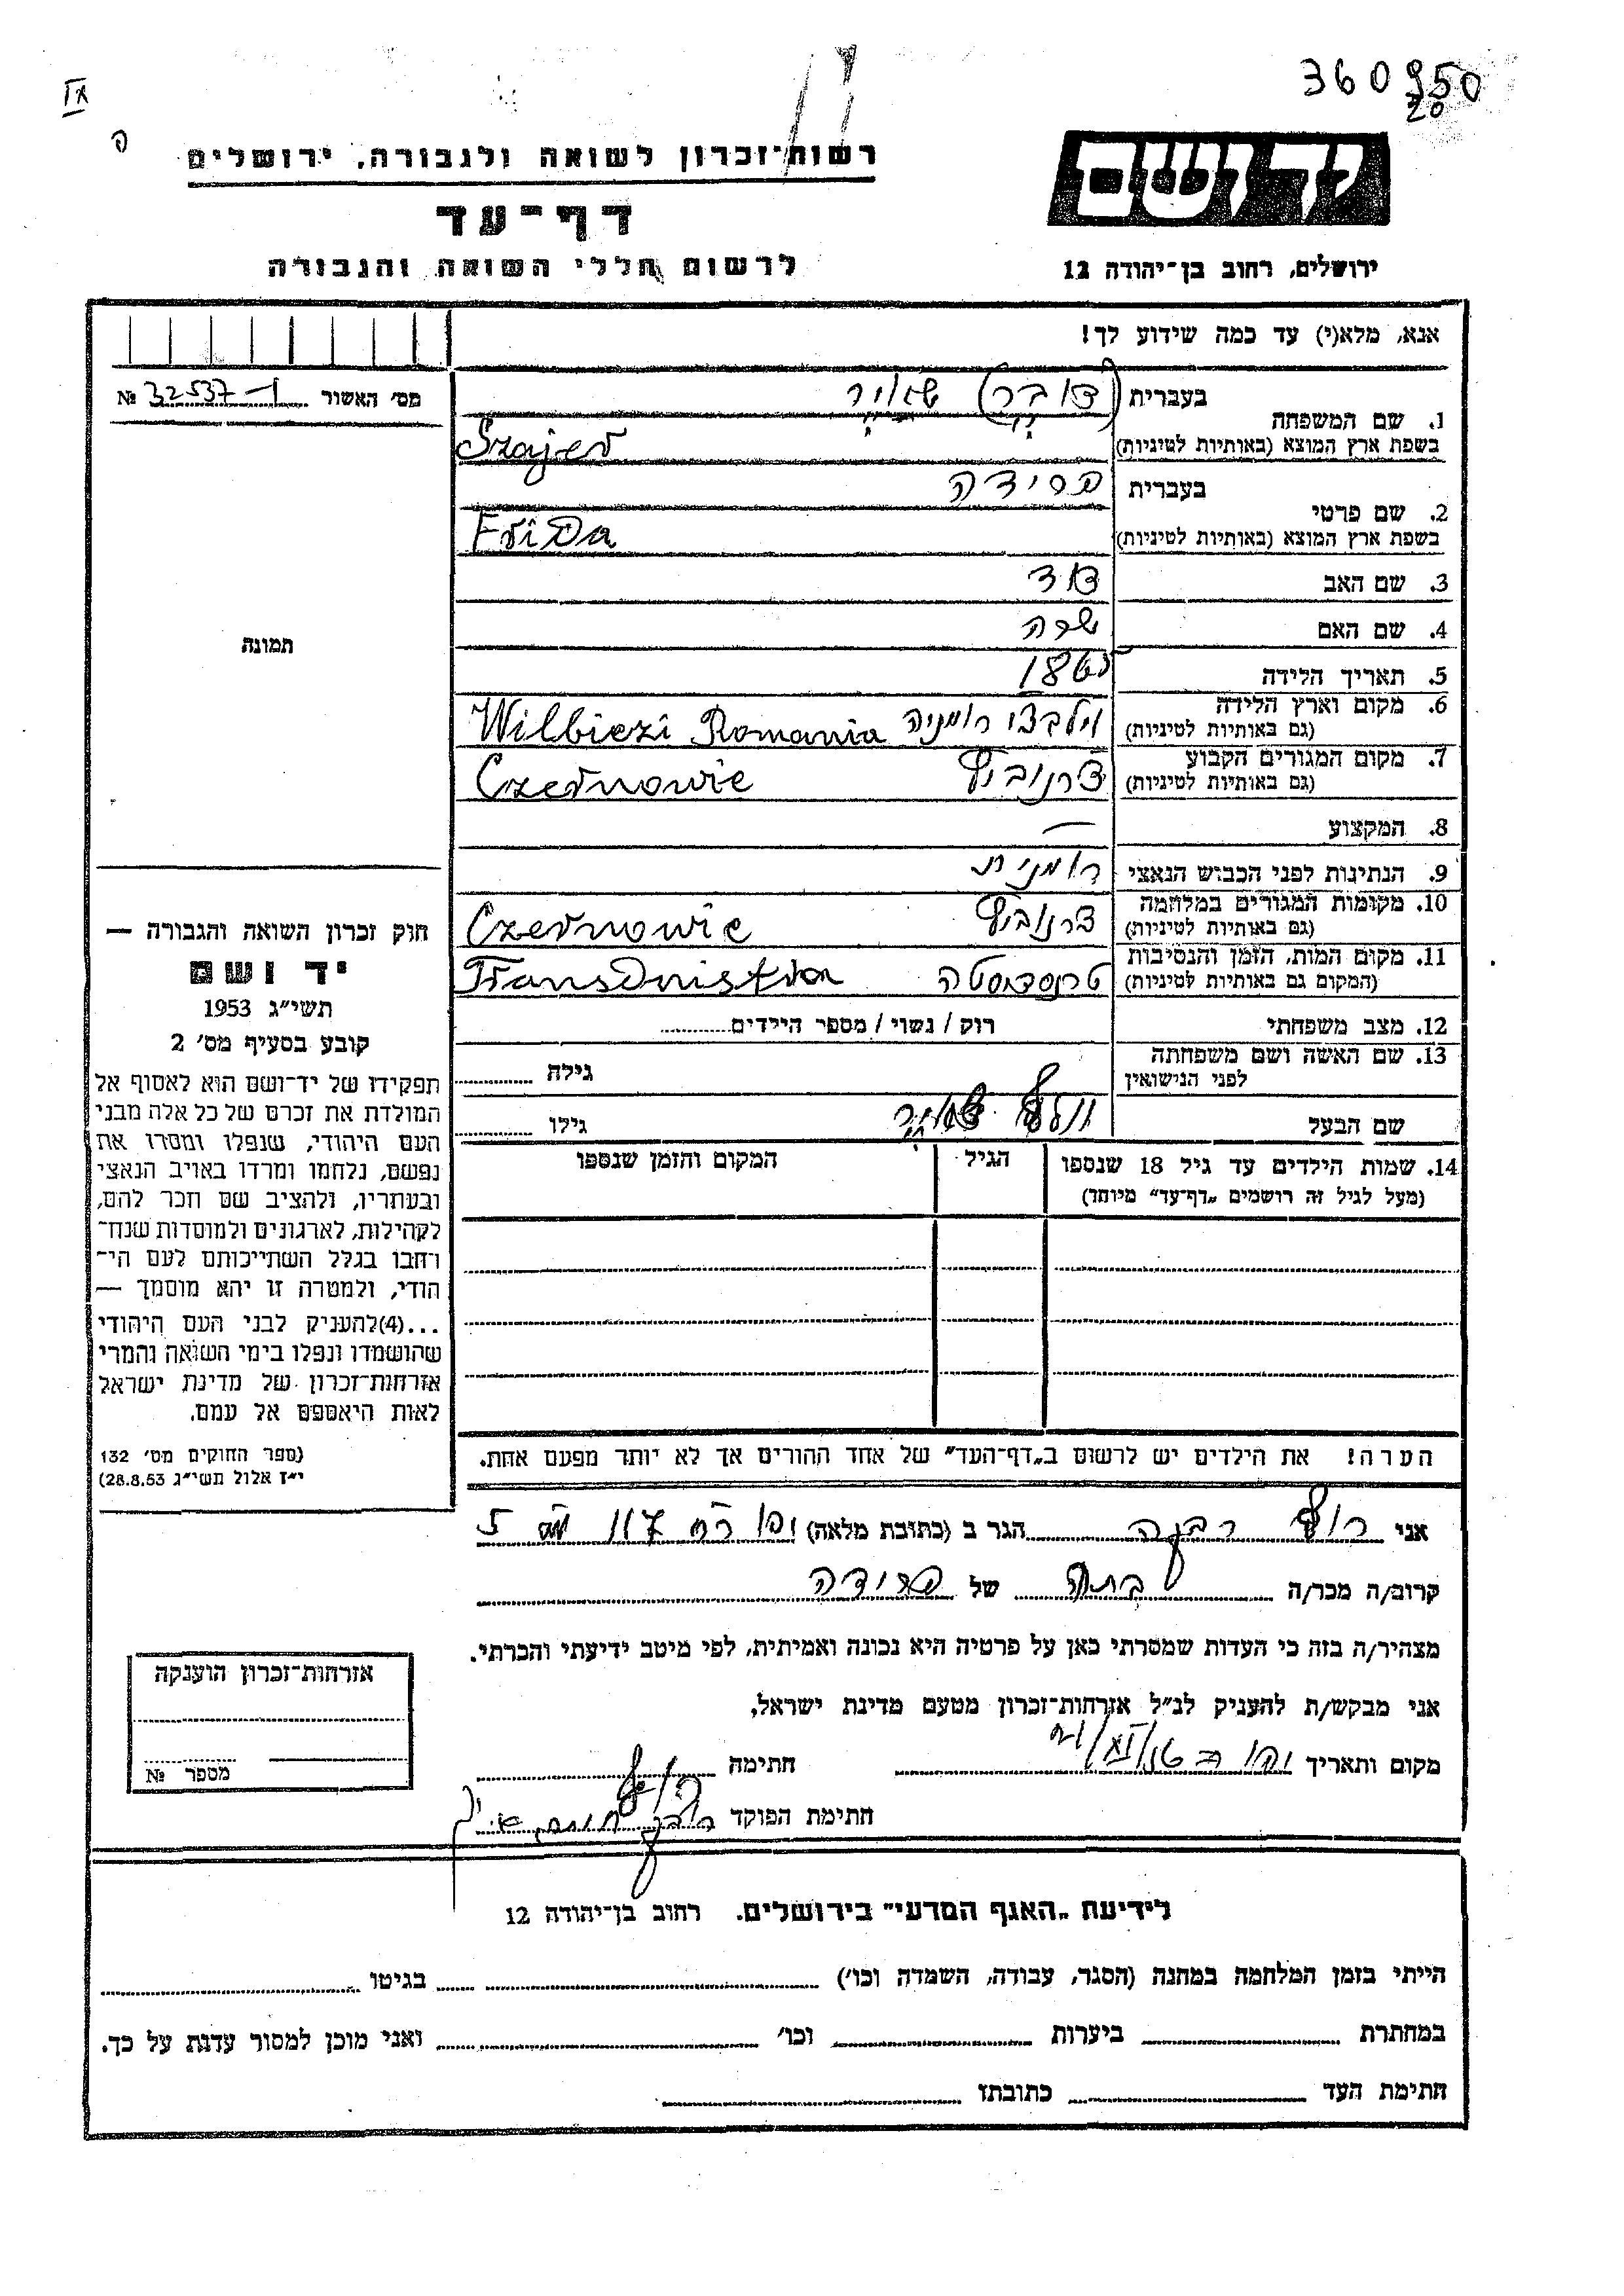 360950
20
IX
רשות־זכרון לשואה ולגבורה, ירושלים
יד ושם
דף־עד
לרשום חללי השואה והגבורה
ירושלים, רחוב בן־יהודה 12
אנא, מלא(י) עד כמה שידוע לך!
מס׳ האשור № 32537
1. שם המשפחה
בעברית
בשפת ארץ המוצא (באותיות לטיניות) Szajer
2. שם פרטי
בעברית פרידה
בשפת ארץ המוצא (באותיות לטיניות) Frida
3. שם האב דוד
4. שם האם שרה
5. תאריך הלידה
6. מקום וארץ הלידה
(גם באותיות לטיניות) רומניה Wilbiezi Romania
7. מקום המגורים הקבוע
(גם באותיות לטיניות) צרנוביץ Czernowic
8. המקצוע —
9. הנתינות לפני הכבוש הנאצי רומנית
10. מקומות המגורים במלחמה
(גם באותיות לטיניות) צרנוביץ Czernowic
11. מקום המות, הזמן והנסיבות
(המקום גם באותיות לטיניות) Transdnistra
12. מצב משפחתי רוק / נשוי / מספר הילדים
13. שם האשה ושם משפחתה
לפני הנישואין
גילה
שם הבעל
גילו
14. שמות הילדים עד גיל 18 שנספו
(מעל לגיל זה רושמים „דף־עד״ מיוחד)
הגיל
המקום והזמן שנספו
הערה! את הילדים יש לרשום ב„דף־העד״ של אחד ההורים אך לא יותר מפעם אחת.
תמונה
חוק זכרון השואה והגבורה —
יד ושם
תשי״ג 1953
קובע בסעיף מס׳ 2
תפקידו של יד־ושם הוא לאסוף אל
המולדת את זכרם של כל אלה מבני
העם היהודי, שנפלו ומסרו את
נפשם, נלחמו ומרדו באויב הנאצי
ובעוזריו, ולהציב שם וזכר להם,
לקהילות, לארגונים ולמוסדות שנח־
רבו בגלל השתייכותם לעם הי־
הודי, ולמטרה זו יהא מוסמך —
...(4)להעניק לבני העם היהודי
שהושמדו ונפלו בימי השואה והמרי
אזרחות־זכרון של מדינת ישראל
לאות היאספם אל עמם.
(ספר החוקים מס׳ 132
י״ז אלול תשי״ג 28.8.53)
אני רבקה הגר ב (כתובת מלאה) יפו
קרוב/ה מכר/ה של פרידה
מצהיר/ה בזה כי העדות שמסרתי כאן על פרטיה היא נכונה ואמיתית, לפי מיטב ידיעתי והכרתי.
אני מבקש/ת להעניק לנ״ל אזרחות־זכרון מטעם מדינת ישראל,
מקום ותאריך יפו חתימה
חתימת הפוקד
אזרחות־זכרון הוענקה
מספר №
לידיעת „האגף המדעי״ בירושלים. רחוב בן־יהודה 12
הייתי בזמן המלחמה במחנה (הסגר, עבודה, השמדה וכו׳) בגיטו
במחתרת ביערות וכו׳ ואני מוכן למסור עדות על כך.
חתימת העד כתובתו